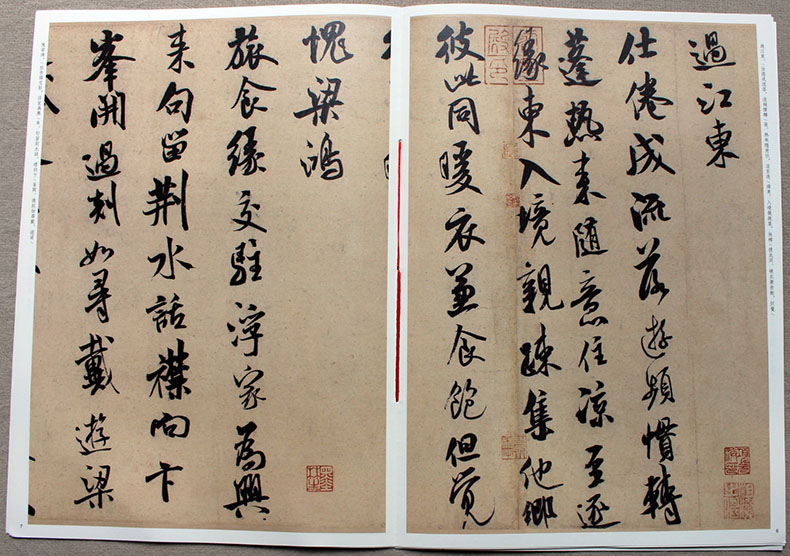 過江東
仕倦成流落遊頻慣轉
蓬熱来随意住凉至逐
縁東入境親疎集他鄉
彼此同暖衣兼食飽但覺
愧梁鴻
旅食縁交駐浮家為興
来句留荆水話襟向卞
峯開過剡如尋戴遊梁